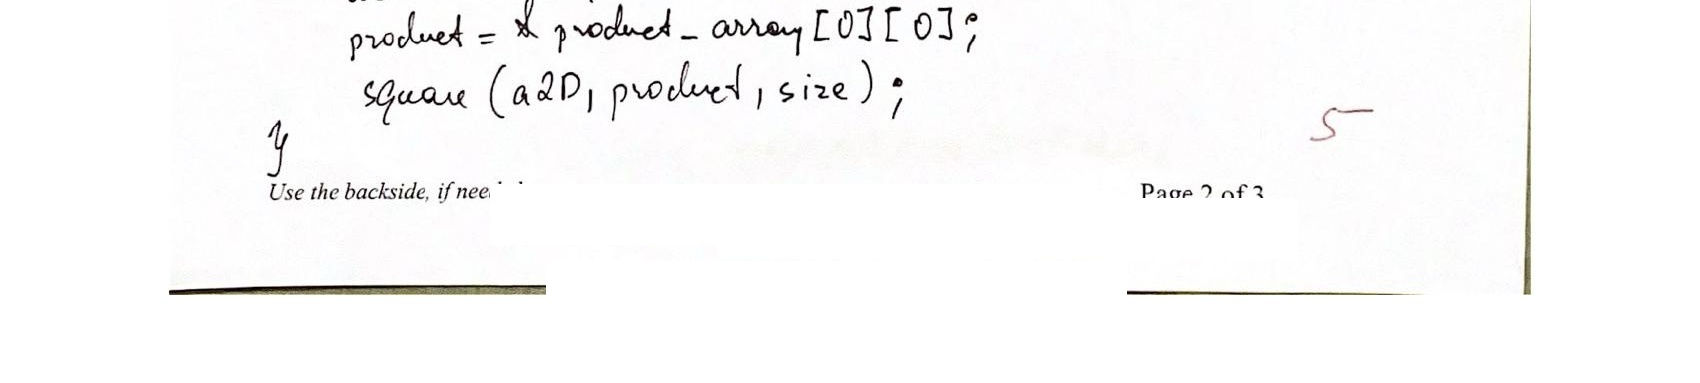 product = & product_array[0][0];
square (a2D, product, size);
}
5
Use the backside, if nee
Page 2 of 3